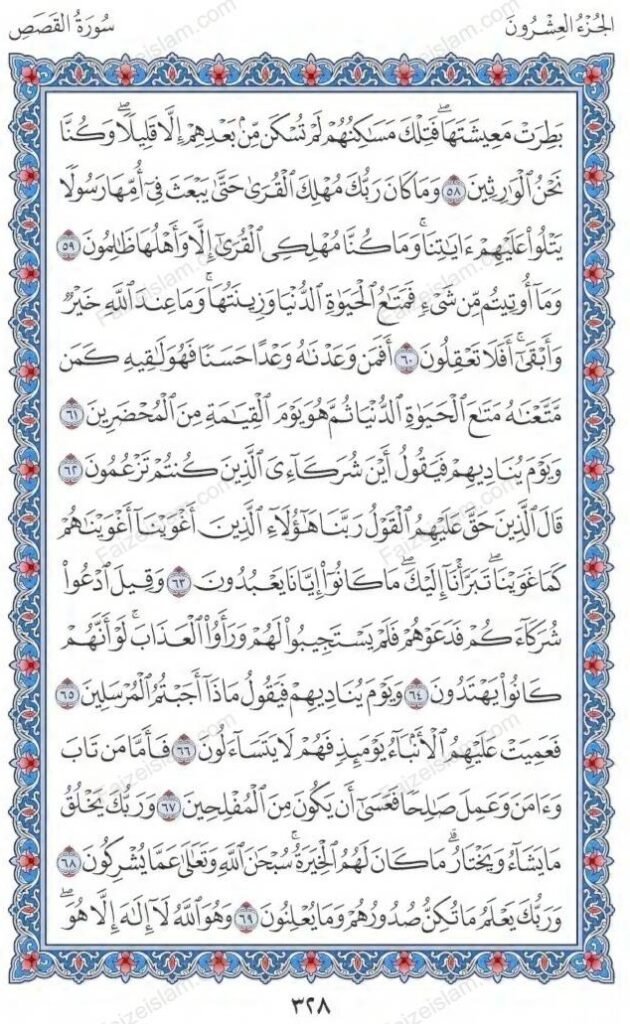 الجُزْءُ العِشْرُونَ
سُورَةُ القَصَصِ
بَطِرَتْ مَعِيشَتَهَا ۖ فَتِلْكَ مَسَٰكِنُهُمْ لَمْ تُسْكَن مِّنۢ بَعْدِهِمْ إِلَّا قَلِيلًا ۖ وَكُنَّا
نَحْنُ ٱلْوَٰرِثِينَ ٥٨ وَمَا كَانَ رَبُّكَ مُهْلِكَ ٱلْقُرَىٰ حَتَّىٰ يَبْعَثَ فِىٓ أُمِّهَا رَسُولًا
يَتْلُوا۟ عَلَيْهِمْ ءَايَٰتِنَا ۚ وَمَا كُنَّا مُهْلِكِى ٱلْقُرَىٰٓ إِلَّا وَأَهْلُهَا ظَٰلِمُونَ ٥٩
وَمَآ أُوتِيتُم مِّن شَىْءٍ فَمَتَٰعُ ٱلْحَيَوٰةِ ٱلدُّنْيَا وَزِينَتُهَا ۚ وَمَا عِندَ ٱللَّهِ خَيْرٌ
وَأَبْقَىٰٓ ۚ أَفَلَا تَعْقِلُونَ ٦٠ أَفَمَن وَعَدْنَٰهُ وَعْدًا حَسَنًا فَهُوَ لَٰقِيهِ كَمَن
مَّتَّعْنَٰهُ مَتَٰعَ ٱلْحَيَوٰةِ ٱلدُّنْيَا ثُمَّ هُوَ يَوْمَ ٱلْقِيَٰمَةِ مِنَ ٱلْمُحْضَرِينَ ٦١
وَيَوْمَ يُنَادِيهِمْ فَيَقُولُ أَيْنَ شُرَكَآءِىَ ٱلَّذِينَ كُنتُمْ تَزْعُمُونَ ٦٢
قَالَ ٱلَّذِينَ حَقَّ عَلَيْهِمُ ٱلْقَوْلُ رَبَّنَا هَٰٓؤُلَآءِ ٱلَّذِينَ أَغْوَيْنَآ أَغْوَيْنَٰهُمْ
كَمَا غَوَيْنَا ۖ تَبَرَّأْنَآ إِلَيْكَ ۖ مَا كَانُوٓا۟ إِيَّانَا يَعْبُدُونَ ٦٣ وَقِيلَ ٱدْعُوا۟
شُرَكَآءَكُمْ فَدَعَوْهُمْ فَلَمْ يَسْتَجِيبُوا۟ لَهُمْ وَرَأَوُا۟ ٱلْعَذَابَ ۚ لَوْ أَنَّهُمْ
كَانُوا۟ يَهْتَدُونَ ٦٤ وَيَوْمَ يُنَادِيهِمْ فَيَقُولُ مَاذَآ أَجَبْتُمُ ٱلْمُرْسَلِينَ ٦٥
فَعَمِيَتْ عَلَيْهِمُ ٱلْأَنۢبَآءُ يَوْمَئِذٍ فَهُمْ لَا يَتَسَآءَلُونَ ٦٦ فَأَمَّا مَن تَابَ
وَءَامَنَ وَعَمِلَ صَٰلِحًا فَعَسَىٰٓ أَن يَكُونَ مِنَ ٱلْمُفْلِحِينَ ٦٧ وَرَبُّكَ يَخْلُقُ
مَا يَشَآءُ وَيَخْتَارُ ۗ مَا كَانَ لَهُمُ ٱلْخِيَرَةُ ۚ سُبْحَٰنَ ٱللَّهِ وَتَعَٰلَىٰ عَمَّا يُشْرِكُونَ ٦٨
وَرَبُّكَ يَعْلَمُ مَا تُكِنُّ صُدُورُهُمْ وَمَا يُعْلِنُونَ ٦٩ وَهُوَ ٱللَّهُ لَآ إِلَٰهَ إِلَّا هُوَ ۖ
٣٢٨
Faizeislam.com